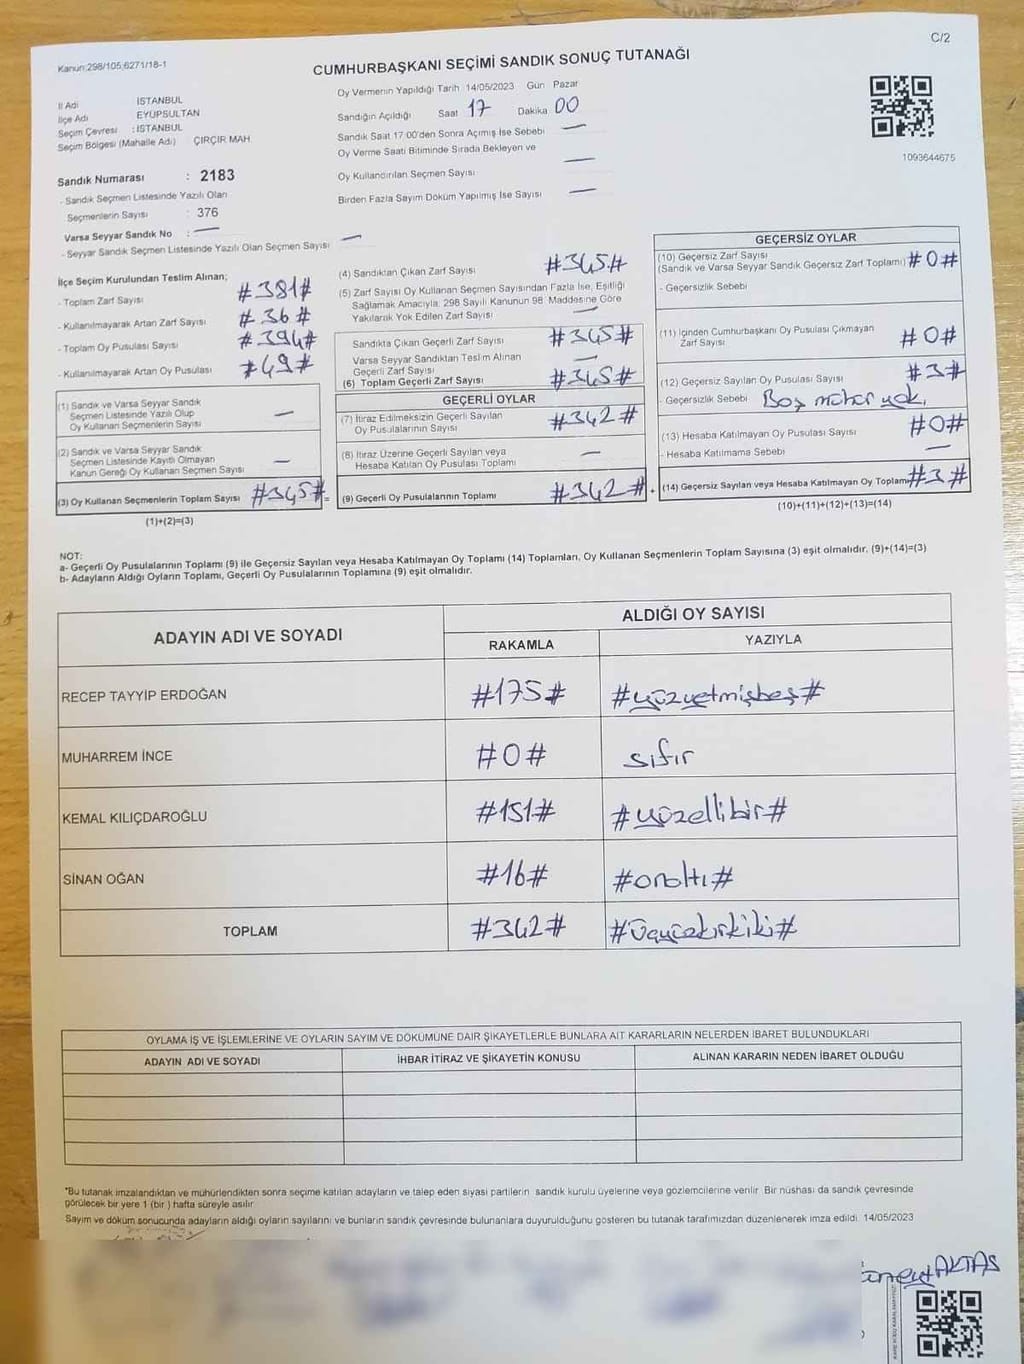 Kanun:298/105;6271/18-1
C/2
CUMHURBAŞKANI SEÇİMİ SANDIK SONUÇ TUTANAĞI
İl Adı İSTANBUL
İlçe Adı EYÜPSULTAN
Seçim Çevresi : İSTANBUL
Seçim Bölgesi (Mahalle Adı) ÇIRÇIR MAH.
Oy Vermenin Yapıldığı Tarih 14/05/2023 Gün Pazar
Sandığın Açıldığı Saat 17 Dakika 00
Sandık Saat 17:00'den Sonra Açımış İse Sebebi —
Oy Verme Saati Bitiminde Sırada Bekleyen ve
Oy Kullandırılan Seçmen Sayısı —
Birden Fazla Sayım Döküm Yapılmış İse Sayısı —
1093644675
Sandık Numarası : 2183
- Sandık Seçmen Listesinde Yazılı Olan
Seçmenlerin Sayısı : 376
Varsa Seyyar Sandık No : —
- Seyyar Sandık Seçmen Listesinde Yazılı Olan Seçmen Sayısı —
İlçe Seçim Kurulundan Teslim Alınan;
- Toplam Zarf Sayısı #381#
- Kullanılmayarak Artan Zarf Sayısı #36#
- Toplam Oy Pusulası Sayısı #394#
- Kullanılmayarak Artan Oy Pusulası #49#
(1) Sandık ve Varsa Seyyar Sandık
Seçmen Listesinde Yazılı Olup
Oy Kullanan Seçmenlerin Sayısı —
(2) Sandık ve Varsa Seyyar Sandık
Seçmen Listesinde Kayıtlı Olmayan
Kanun Gereği Oy Kullanan Seçmen Sayısı —
(3) Oy Kullanan Seçmenlerin Toplam Sayısı #345# =
(1)+(2)=(3)
(4) Sandıktan Çıkan Zarf Sayısı #345#
(5) Zarf Sayısı Oy Kullanan Seçmen Sayısından Fazla İse, Eşitliği
Sağlamak Amacıyla; 298 Sayılı Kanunun 98. Maddesine Göre
Yakılarak Yok Edilen Zarf Sayısı —
Sandıkta Çıkan Geçerli Zarf Sayısı #345#
Varsa Seyyar Sandıktan Teslim Alınan
Geçerli Zarf Sayısı —
(6) Toplam Geçerli Zarf Sayısı #345#
GEÇERLİ OYLAR
(7) İtiraz Edilmeksizin Geçerli Sayılan
Oy Pusulalarının Sayısı #342#
(8) İtiraz Üzerine Geçerli Sayılan veya
Hesaba Katılan Oy Pusulası Toplamı —
(9) Geçerli Oy Pusulalarının Toplamı #342# +
GEÇERSİZ OYLAR
(10) Geçersiz Zarf Sayısı
(Sandık ve Varsa Seyyar Sandık Geçersiz Zarf Toplamı) #0#
- Geçersizlik Sebebi
(11) İçinden Cumhurbaşkanı Oy Pusulası Çıkmayan
Zarf Sayısı #0#
(12) Geçersiz Sayılan Oy Pusulası Sayısı #3#
- Geçersizlik Sebebi Boş mühür yok.
(13) Hesaba Katılmayan Oy Pusulası Sayısı #0#
- Hesaba Katılmama Sebebi —
(14) Geçersiz Sayılan veya Hesaba Katılmayan Oy Toplamı #3#
(10)+(11)+(12)+(13)=(14)
NOT:
a- Geçerli Oy Pusulalarının Toplamı (9) ile Geçersiz Sayılan veya Hesaba Katılmayan Oy Toplamı (14) Toplamları, Oy Kullanan Seçmenlerin Toplam Sayısına (3) eşit olmalıdır. (9)+(14)=(3)
b- Adayların Aldığı Oyların Toplamı, Geçerli Oy Pusulalarının Toplamına (9) eşit olmalıdır.
ADAYIN ADI VE SOYADI ALDIĞI OY SAYISI
RAKAMLA YAZIYLA
RECEP TAYYİP ERDOĞAN #175# #yüzyetmişbeş#
MUHARREM İNCE #0# sıfır
KEMAL KILIÇDAROĞLU #151# #yüzellibir#
SİNAN OĞAN #16# #onaltı#
TOPLAM #342# #üçyüzkırkiki#
OYLAMA İŞ VE İŞLEMLERİNE VE OYLARIN SAYIM VE DÖKÜMÜNE DAİR ŞİKAYETLERLE BUNLARA AİT KARARLARIN NELERDEN İBARET BULUNDUKLARI
ADAYIN ADI VE SOYADI İHBAR İTİRAZ VE ŞİKAYETİN KONUSU ALINAN KARARIN NEDEN İBARET OLDUĞU
*Bu tutanak imzalandıktan ve mühürlendikten sonra seçime katılan adayların ve talep eden siyasi partilerin sandık kurulu üyelerine veya gözlemcilerine verilir. Bir nüshası da sandık çevresinde
görülecek bir yere 1 (bir ) hafta süreyle asılır
Sayım ve döküm sonucunda adayların aldığı oyların sayılarını ve bunların sandık çevresinde bulunanlara duyurulduğunu gösteren bu tutanak tarafımızdan düzenlenerek imza edildi. 14/05/2023
AKTAŞ